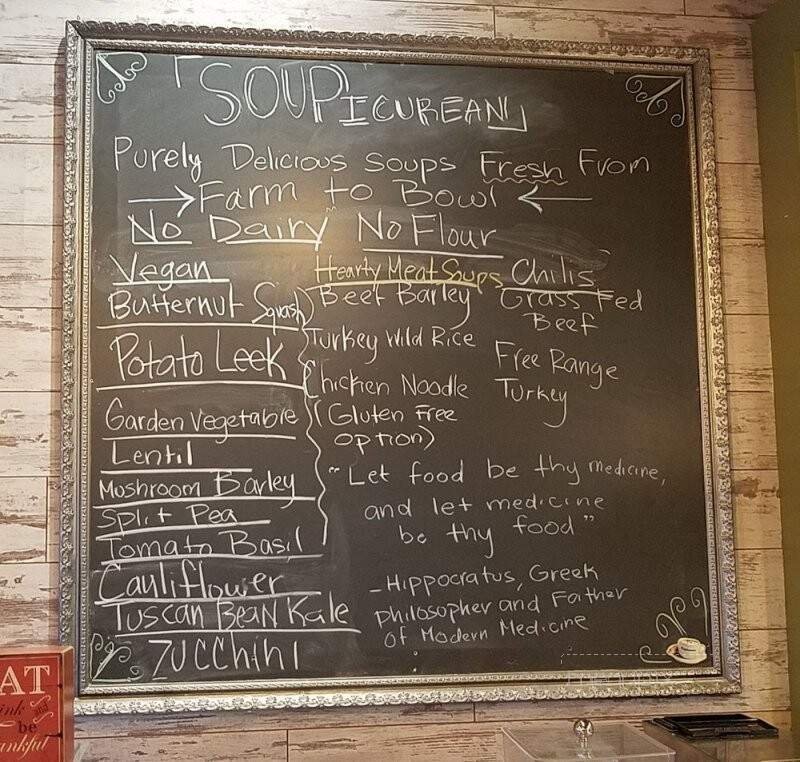 SOUPICUREAN
Purely Delicious Soups Fresh From
Farm to Bowl
No Dairy No Flour
Vegan
Butternut Squash
Potato Leek
Garden Vegetable
Lentil
Mushroom Barley
Split Pea
Tomato Basil
Cauliflower
Tuscan Bean Kale
Zucchini
Hearty Meat Soups
Beef Barley
Turkey Wild Rice
Chicken Noodle
(Gluten Free
option)
Chilis
Grass Fed
Beef
Free Range
Turkey
"Let food be thy medicine,
and let medicine
be thy food"
-Hippocratus, Greek
Philosopher and Father
Of Modern Medicine
AT
ink and
be
ankful